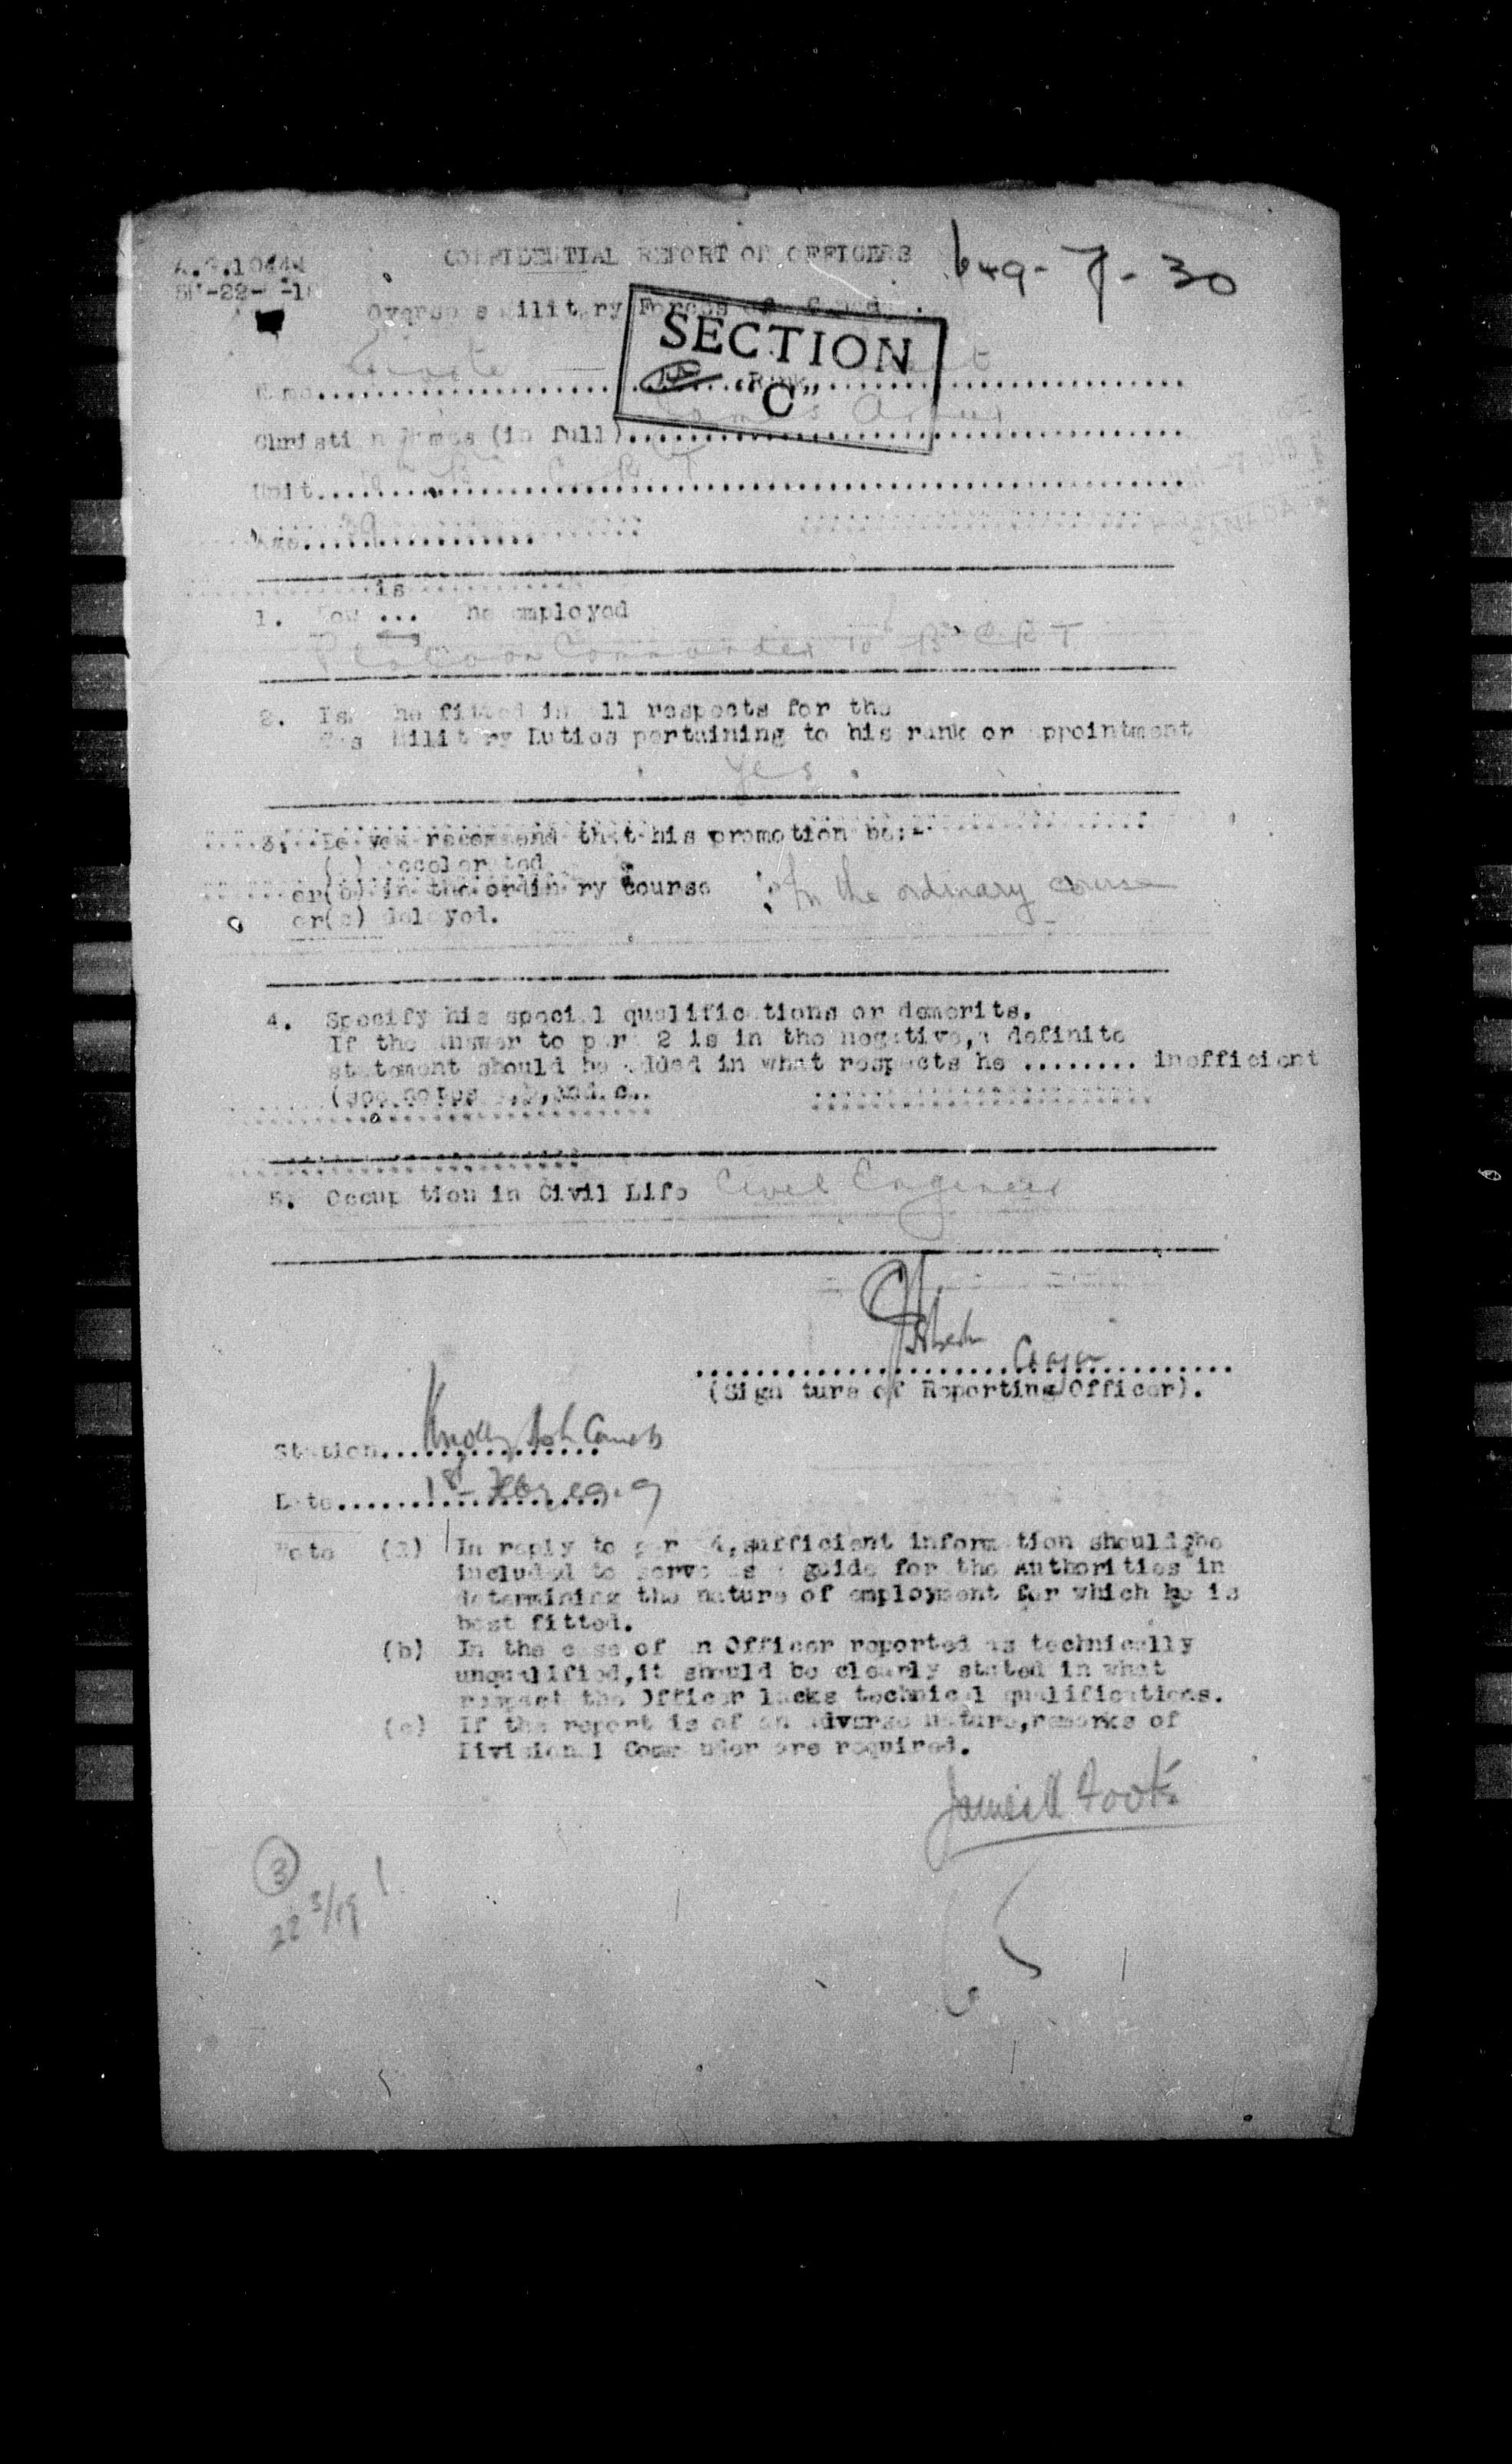 A.G.10444
CONFIDENTIAL REPORT ON OFFICERS
649-7-30
Overseas Military Forces of Canada.
SECTION
"C"
Name Rank
Christian Names (in full) James
Unit
Age 39
is
1. How ... he employed
Platoon Commander 10 Bn C R T
2. Is he fitted in all respects for the
Military Duties pertaining to his rank or appointment
Yes.
3. Do you recommend that his promotion be:-
(a) accelerated
or(b) in the ordinary course
In the ordinary course
or(c) delayed.
4. Specify his special qualifications or demerits.
If the answer to para 2 is in the negative,a definite
statement should be added in what respects he ........ inefficient
(see notes a,b,and c.
5. Occupation in Civil Life Civil Engineer
(Signature of Reporting Officer).
Station
Date 18
Note (a) In reply to para 4,sufficient information should be
included to serve as a guide for the Authorities in
determining the nature of employment for which he is
best fitted.
(b) In the case of an Officer reported as technically
unqualified,it should be clearly stated in what
respect the Officer lacks technical qualifications.
(c) If the report is of an adverse nature,remarks of
Divisional Commander are required.
3
22 3/19